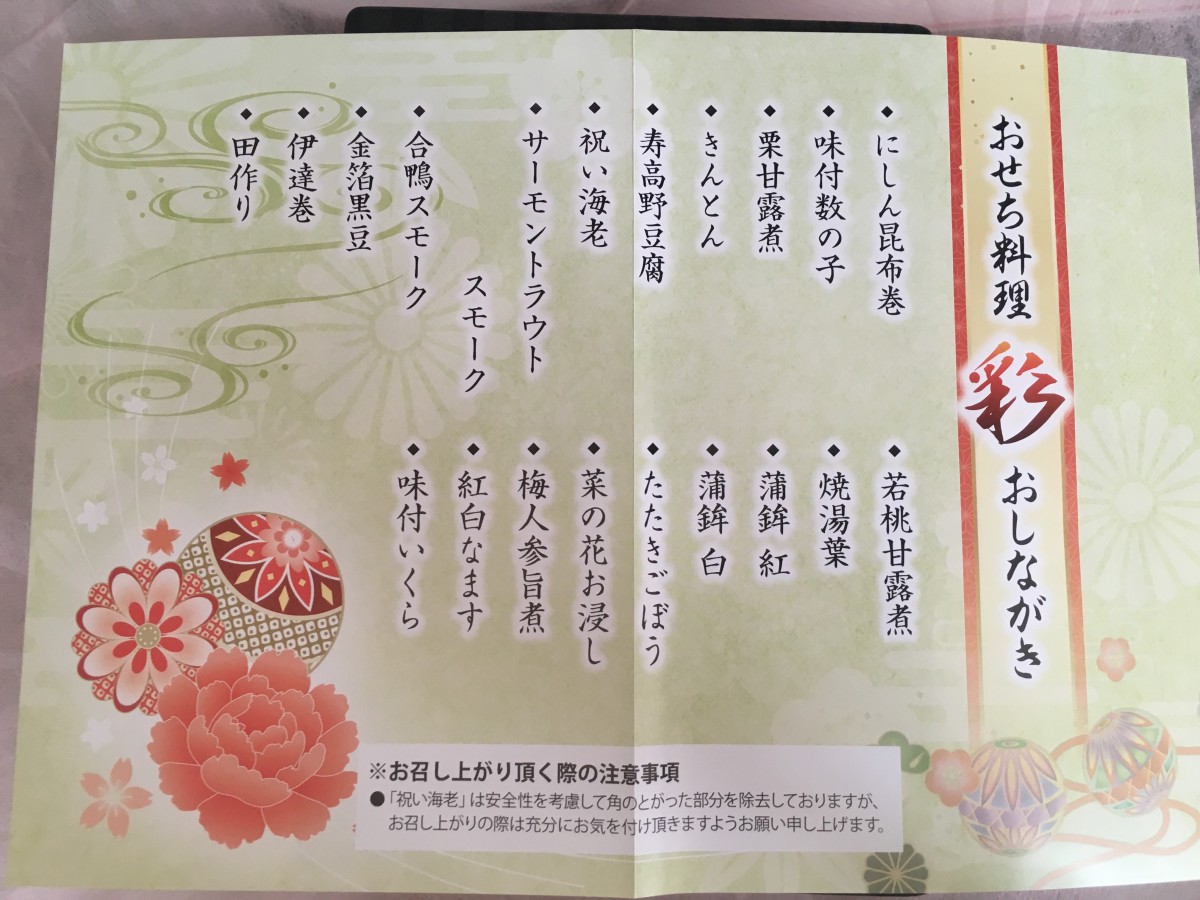 おせち料理 彩 おしながき
◆にしん昆布巻
◆味付数の子
◆栗甘露煮
◆きんとん
◆寿高野豆腐
◆祝い海老
◆サーモントラウト
スモーク
◆合鴨スモーク
◆金箔黒豆
◆伊達巻
◆田作り
◆若桃甘露煮
◆焼湯葉
◆蒲鉾 紅
◆蒲鉾 白
◆たたきごぼう
◆菜の花お浸し
◆梅人参旨煮
◆紅白なます
◆味付いくら
※お召し上がり頂く際の注意事項
●「祝い海老」は安全性を考慮して角のとがった部分を除去しておりますが、
お召し上がりの際は充分にお気を付け頂きますようお願い申し上げます。